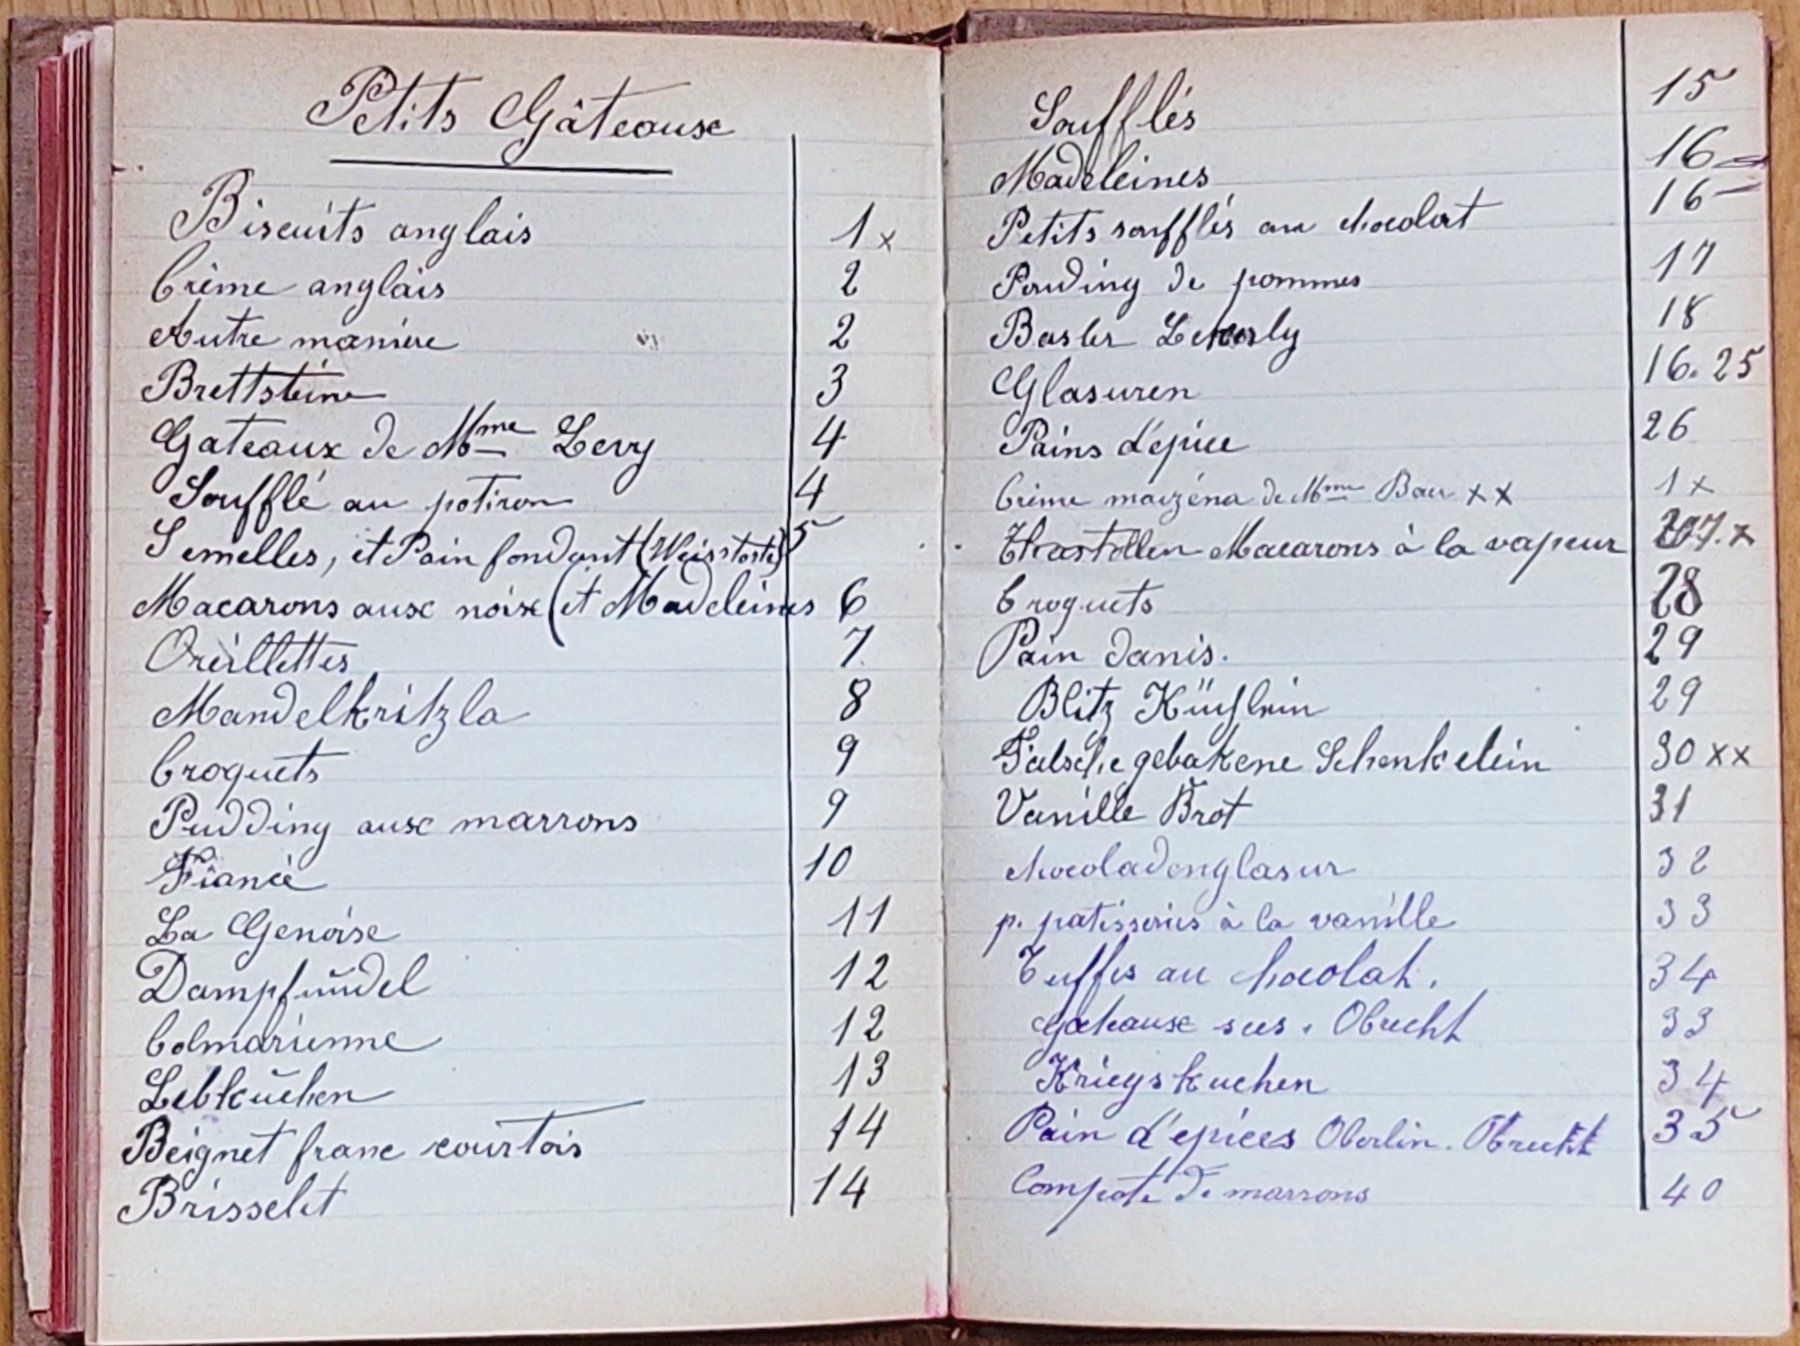 Petits Gâteaux
Biscuits anglais 1 x
Crème anglais 2
Autre manière 2
Brettsteine 3
Gateaux de Mme Levy 4
Soufflé au potiron 4
Semelles, et Pain fondant (Weisstorte) 5
Macarons aux noix (et Madeleines 6
Oreillettes 7
Mandelkritzla 8
Croquets 9
Pudding aux marrons 9
Fiancée 10
La Genoise 11
Dampfnŭdel 12
Colmarienne 12
Lebkŭchen 13
Beignet franc courtois 14
Brisselet 14
Soufflés 15
Madeleines 16
Petits soufflés au chocolat 16
Pouding de pommes 17
Basler Lekerly 18
Glasuren 16. 25
Pains d'épice 26
Crème maïzéna de Mme Baur x x 1 x
Macarons à la vapeur 27. x
Croquets 28
Pain danis. 29
Blitz Küchlein 29
Falsche gebakene Schenkelein 30 x x
Vanille Brot 31
chocoladenglasur 32
p. patisseries à la vanille 33
Truffes au chocolat. 34
Gateaux secs. Obrecht 33
Kriegskuchen 34
Pain d'epices Oberlin. Obrecht 35
Compote de marrons 40